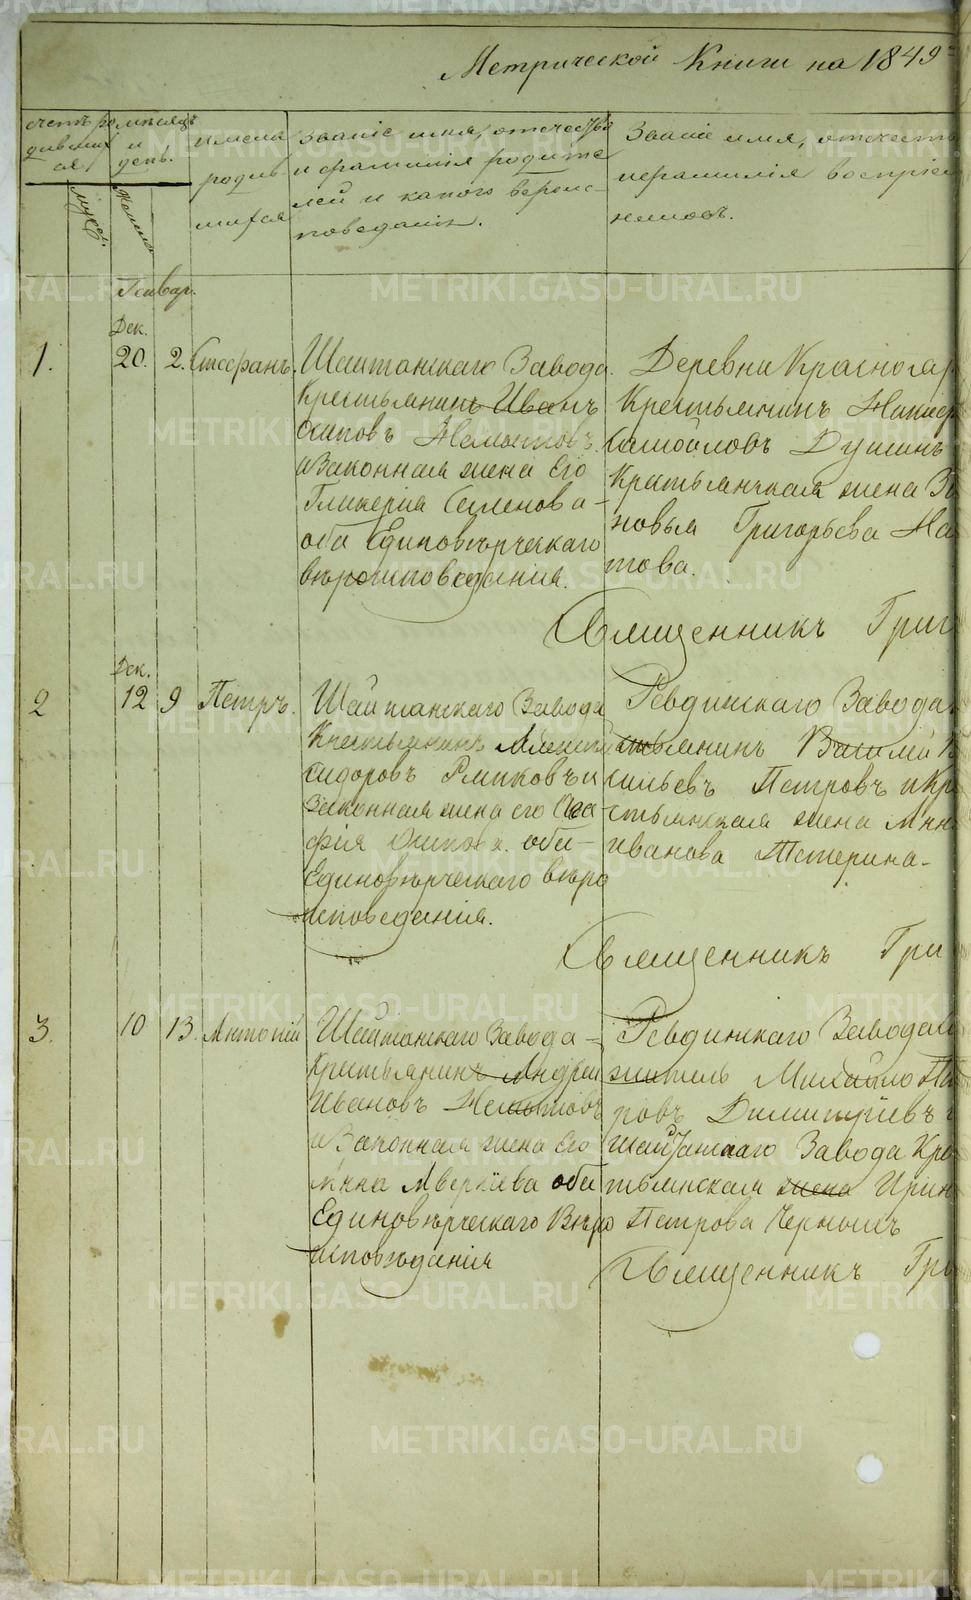 Метрической Книги на 1849
счетъ ро
дивших
ся
мужес.
женск.
месяцъ
и
день.
имена
родив
шихся
Званіе имя, отечество
и фамилія родите
лей и какого вероис-
поведанія.
Званіе имя, отечеств
и фамилія воспріем
никовъ.
Генвар.
Дек.
1. 20. 2. Стефанъ. Шайтанскаго Завода
Крестьянинъ Иванъ
Осиповъ
и Законная жена Его
Гликерія Семенова-
оба Единоверческаго
вероисповедания.
Деревни Красногор
Крестьянинъ
Самойловъ Душинъ
Крестьянская жена
новья Григорьева
това.
Священникъ Григ
Дек.
2 12 9 Петръ. Шайтанскаго Завода
Крестьянинъ Алексей
Сидоровъ и
Законная жена его Ага-
фія Осипова. оба-
Единоверческаго веро
исповедания.
Ревдинскаго Завода
стьянинъ Василій В
сильевъ Петровъ и Кре
стьянская жена Анн
Иванова Петерина-
Священникъ Гри
3. 10 13. Антоній Шайтанскаго Завода-
Крестьянинъ Андрей
Ивановъ
и Законная жена Его
Анна Аверкіева оба
Единоверческаго Веро
исповъдания
Ревдинскаго Завода
житель Михайло Пе
ровъ Димитріевъ
Шайтанскаго Завода Кре
тьянская жена Ирин
Петрова Черныхъ
Священникъ Гри
METRIKI.GASO-URAL.RU